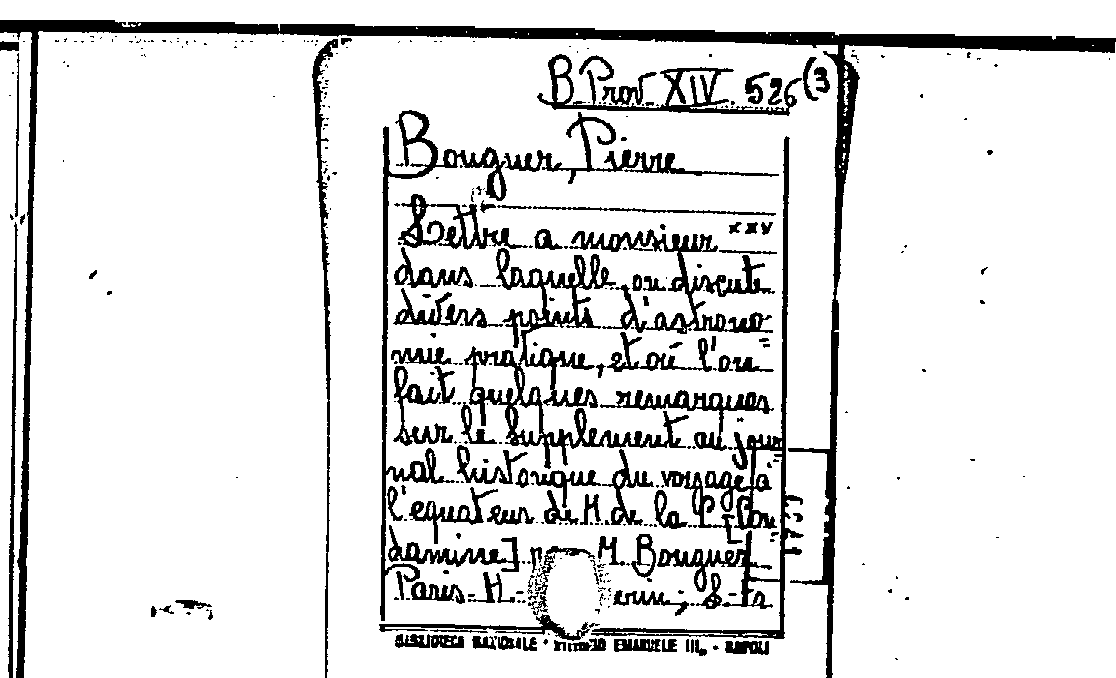 B. Prov. XIV. 526 (3
Bouguer, Pierre
Lettre a monsieur xxx
dans laquelle on discute
divers points d'astrono=
mie pratique, et où l'on
fait quelques remarques
sur le supplement au jour=
nal historique du voyage à
l'equateur de M. de la C[on=
damine] M. Bouguer
Paris H.
BIBLIOTECA NAZIONALE - VITTORIO EMANUELE III - NAPOLI